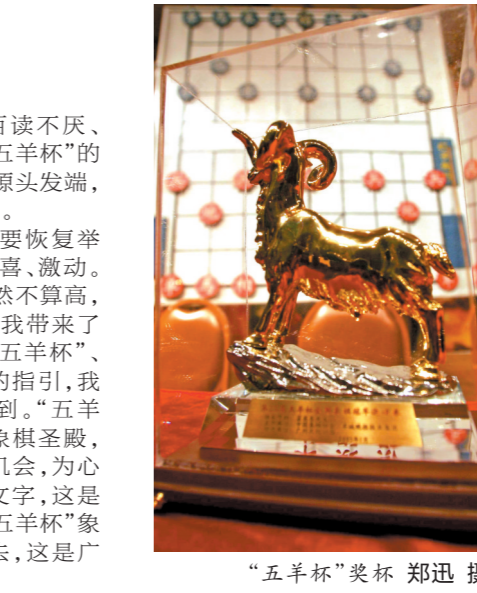 百读不厌、
五羊杯”的
源头发端,
。
要恢复举
喜、激动。
然不算高,
我带来了
五羊杯”、
的指引,我
到。“五羊
象棋圣殿,
机会,为心
文字,这是
五羊杯”象
去,这是广
“五羊杯”奖杯 郑迅 摄